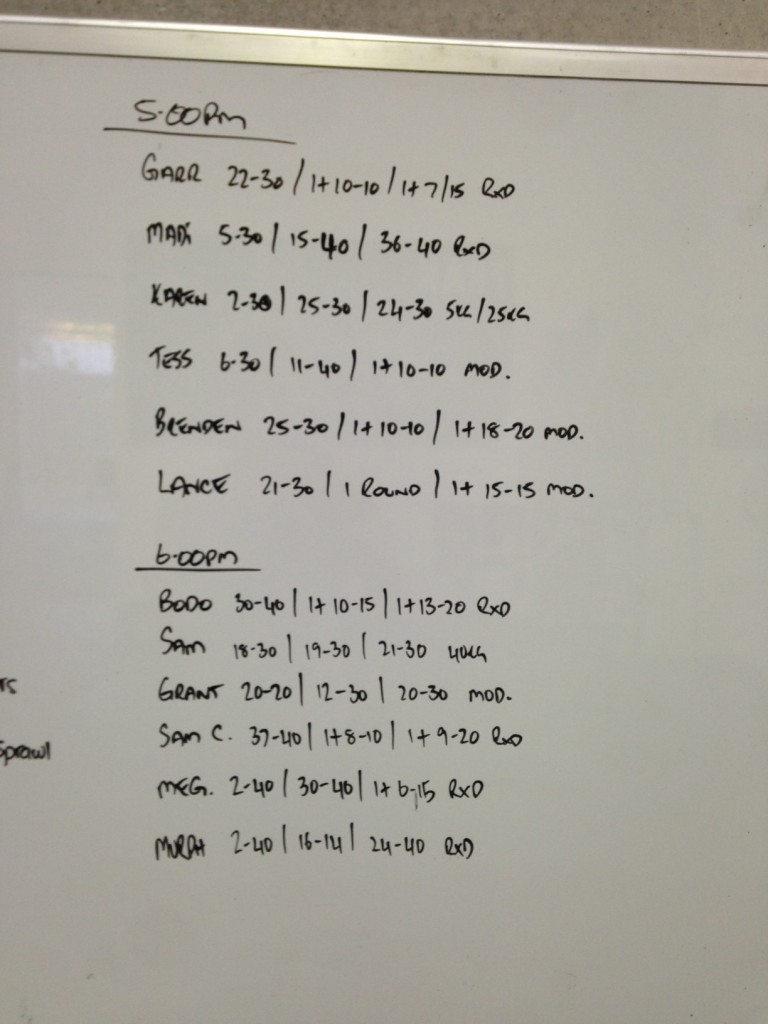 5.00PM
GARR 22-30 / 1+10-10 / 1+7/15 RxD
MADI 5-30 | 15-40 | 36-40 RxD
KAREN 2-30 | 25-30 | 24-30 5KG/25KG
TESS 6-30 | 11-40 | 1+10-10 MOD.
BRENDEN 25-30 | 1+10-10 | 1+18-20 MOD.
LANCE 21-30 | 1 ROUND | 1+ 15-15 MOD.
6.00PM
BODO 30-40 | 1+10-15 | 1+13-20 RxD
SAM 18-30 | 19-30 | 21-30 40KG
GRANT 20-20 | 12-30 | 20-30 MOD.
SAM C. 37-40 | 1+8-10 | 1+9-20 RxD
MEG. 2-40 | 30-40 | 1+6-15 RxD
MURPH 2-40 | 16-14 | 24-40 RxD
rs
Sprawl